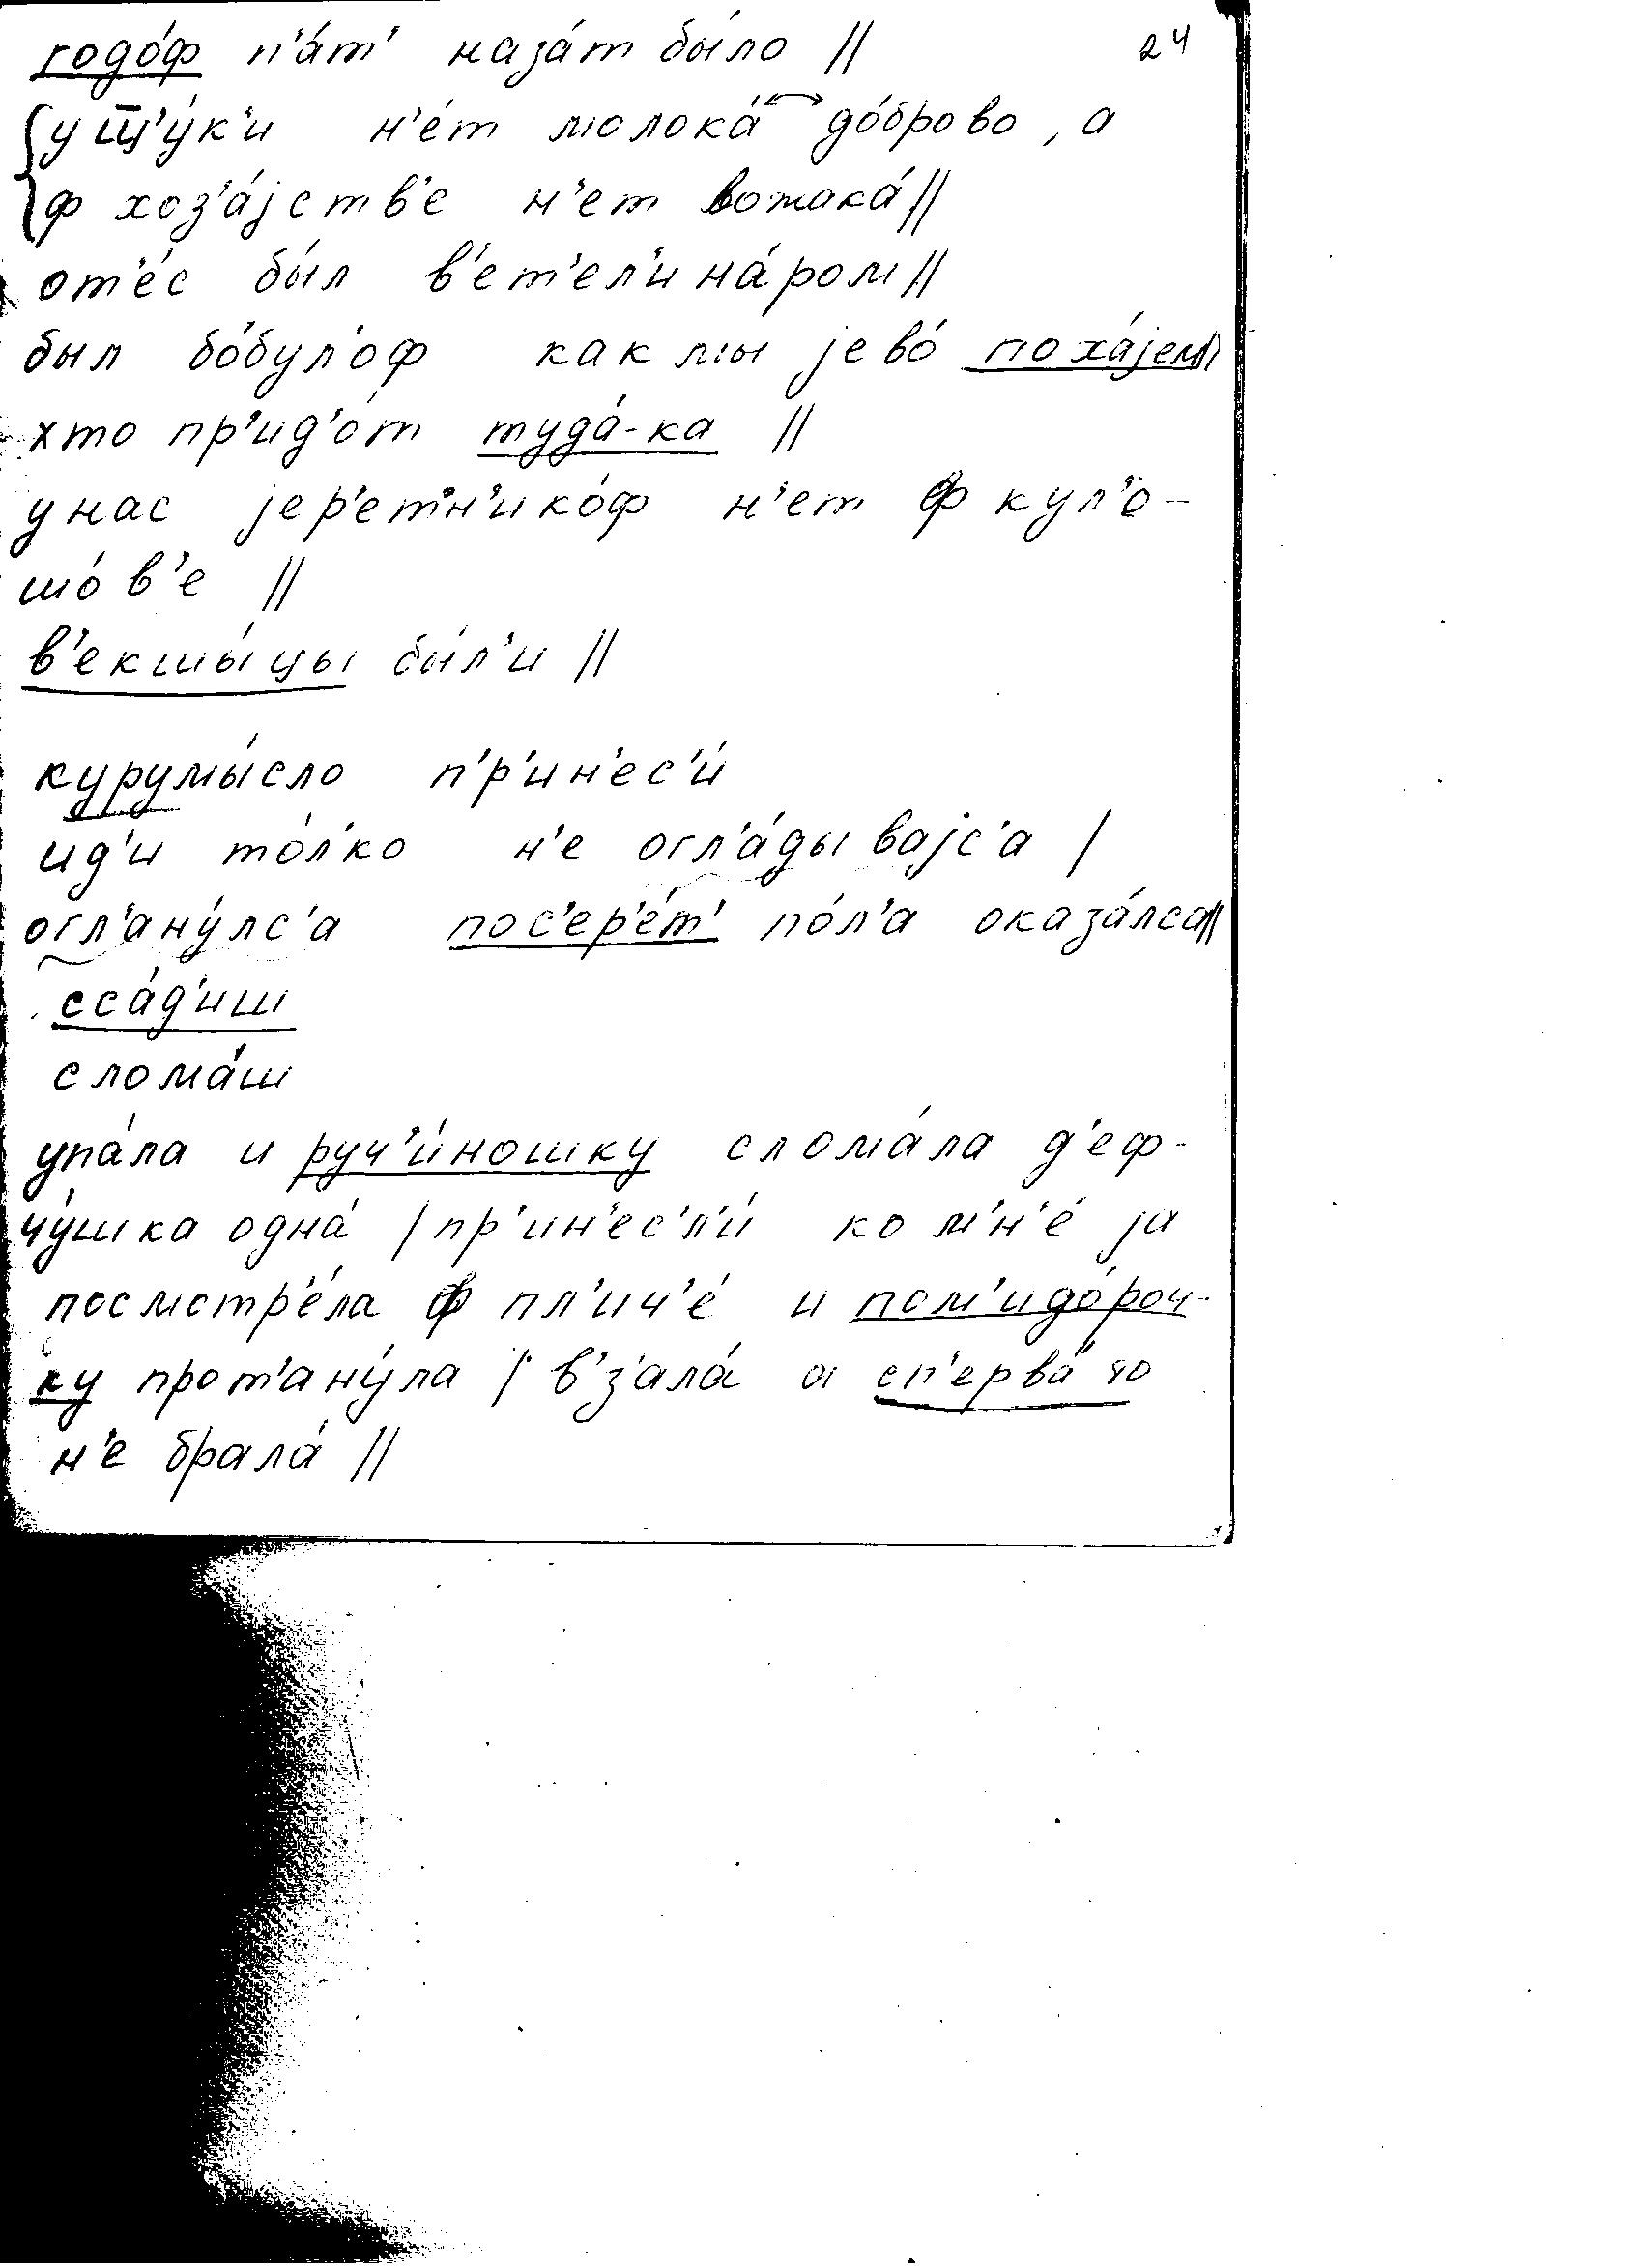 годо́ф п'а́т' наза́т бы́ло // 24
у ш̅'у́к'и н'е́т молока́ до́брово, а
ф хоз'а́jств'е н'ет вожака́ //
от'е́с бы́л в'ет'ел'ина́ром //
был бо́бул'оф как мы jево́ поха́jем //
хто пр'ид'о́т туда́-ка //
у нас jер'ет'н'ико́ф н'ет ф кул'о-
шо́в'е //
в'екшы́цы бы́л'и //
курумы́сло п'р'ин'ес'и́
ид'и то́л'ко н'е огл'а́дывајс'а /
огл'ану́лс'а пос'ер'е́т' по́л'а оказа́лса //
сса́д'иш
слома́ш
упа́ла и руч'и́ношку слома́ла д'еф-
чу́шка одна́ / пр'ин'ес'л'и́ ко м'н'е́ jа
посмотр'е́ла ф пл'ич'е́ и пом'идо́роч-
ку прот'ану́ла / в'з'ала́ а сп'ерва́ чо
н'е брала́ //